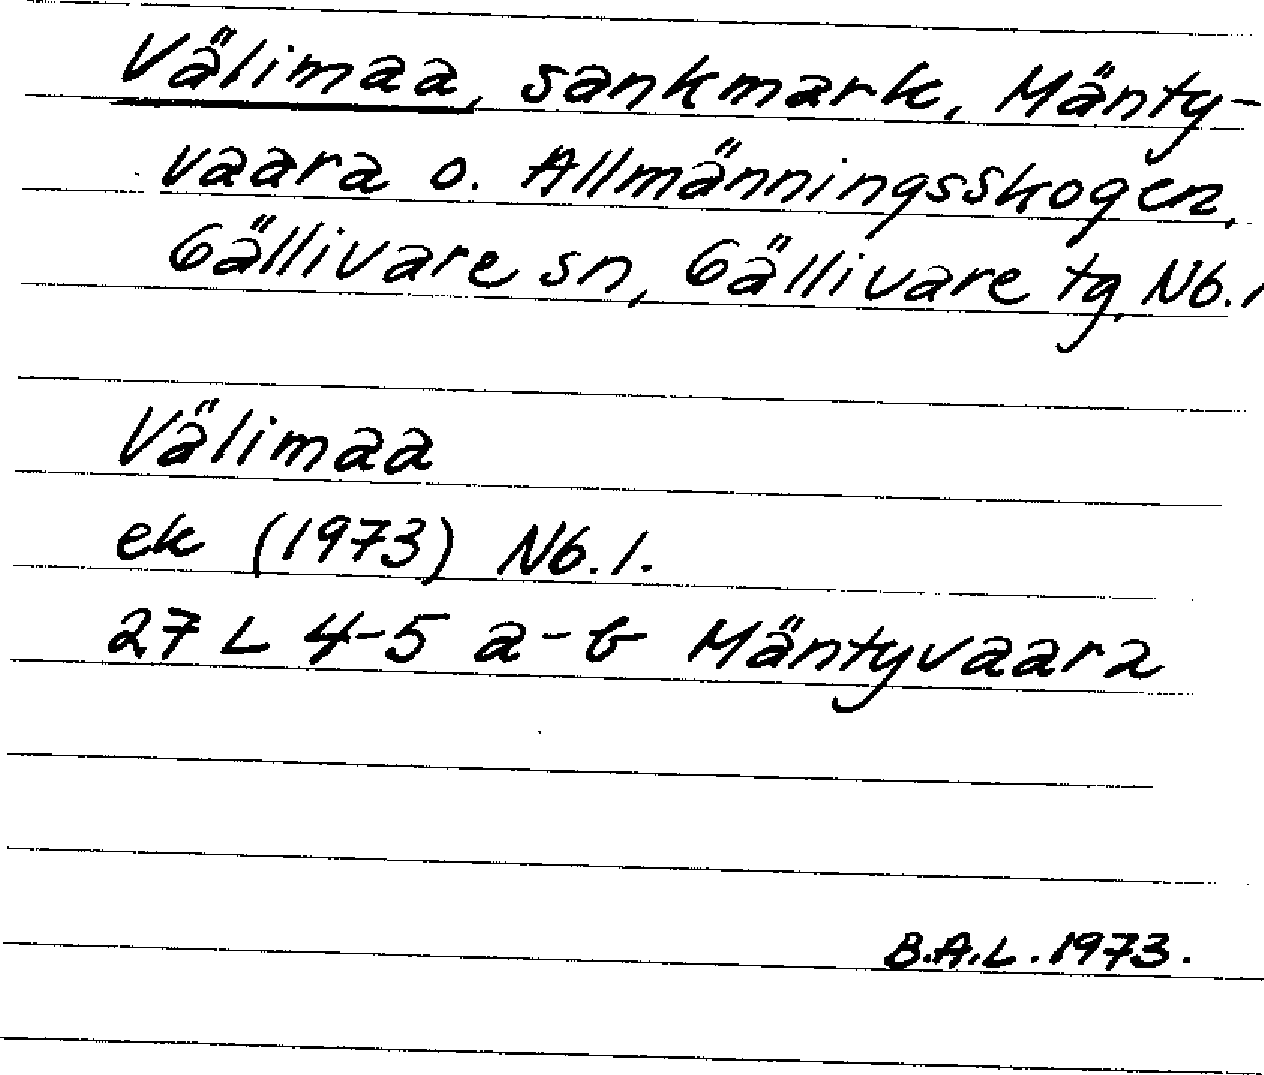 Välimaa, sankmark, Mänty-
vaara o. Allmänningsskogen,
Gällivare sn, Gällivare tg, Nb.l
Välimaa
ek (1973) Nb.l.
27 L 4-5 a-b Mäntyvaara
B.A.L. 1973.